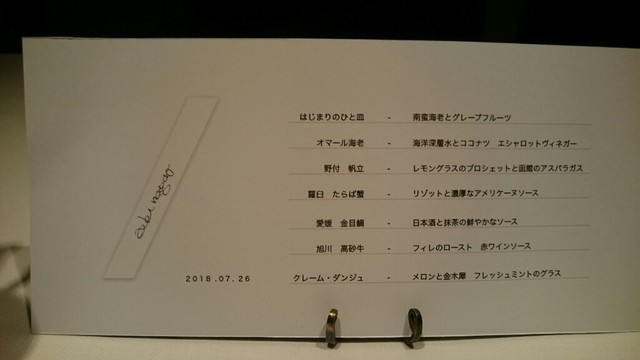 はじまりのひと皿 - 南蛮海老とグレープフルーツ
オマール海老 - 海洋深層水とココナツ エシャロットヴィネガー
野付 帆立 - レモングラスのブロシェットと函館のアスパラガス
羅臼 たらば蟹 - リゾットと濃厚なアメリケーヌソース
愛媛 金目鯛 - 日本酒と抹茶の鮮やかなソース
旭川 高砂牛 - フィレのロースト 赤ワインソース
クレーム・ダンジュ - メロンと金木犀 フレッシュミントのグラス
2018.07.26